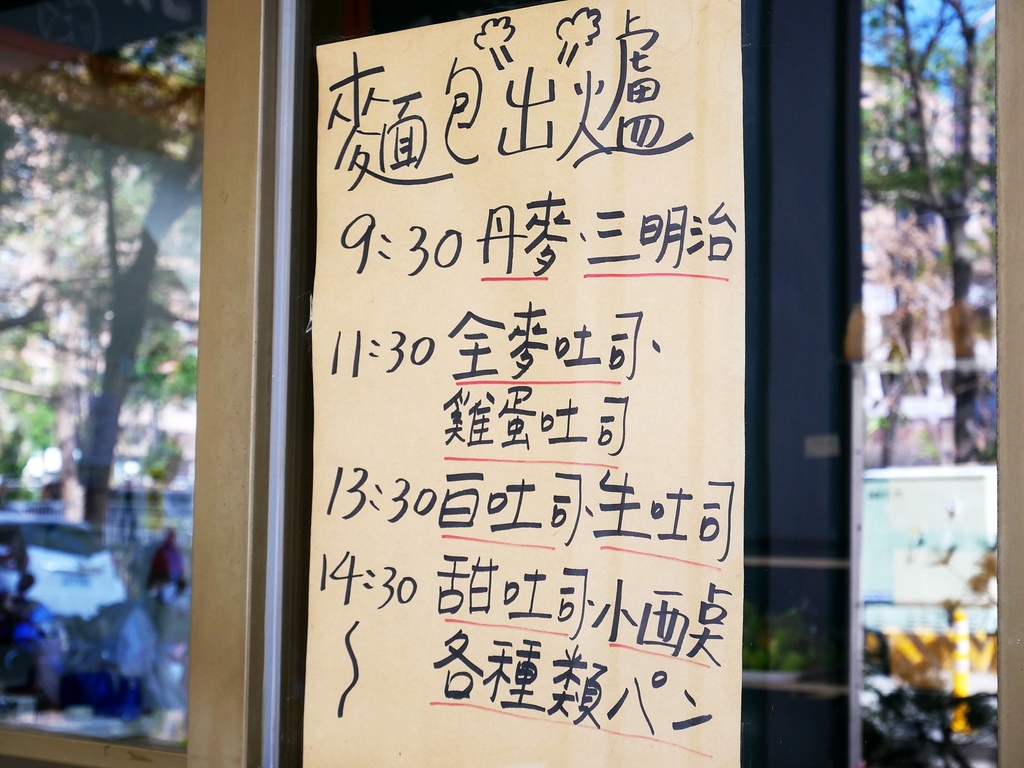 麵包出爐
9:30 丹麥、三明治
11:30 全麥吐司、
雞蛋吐司
13:30 白吐司、生吐司
14:30 甜吐司、小西点
~ 各種類パン